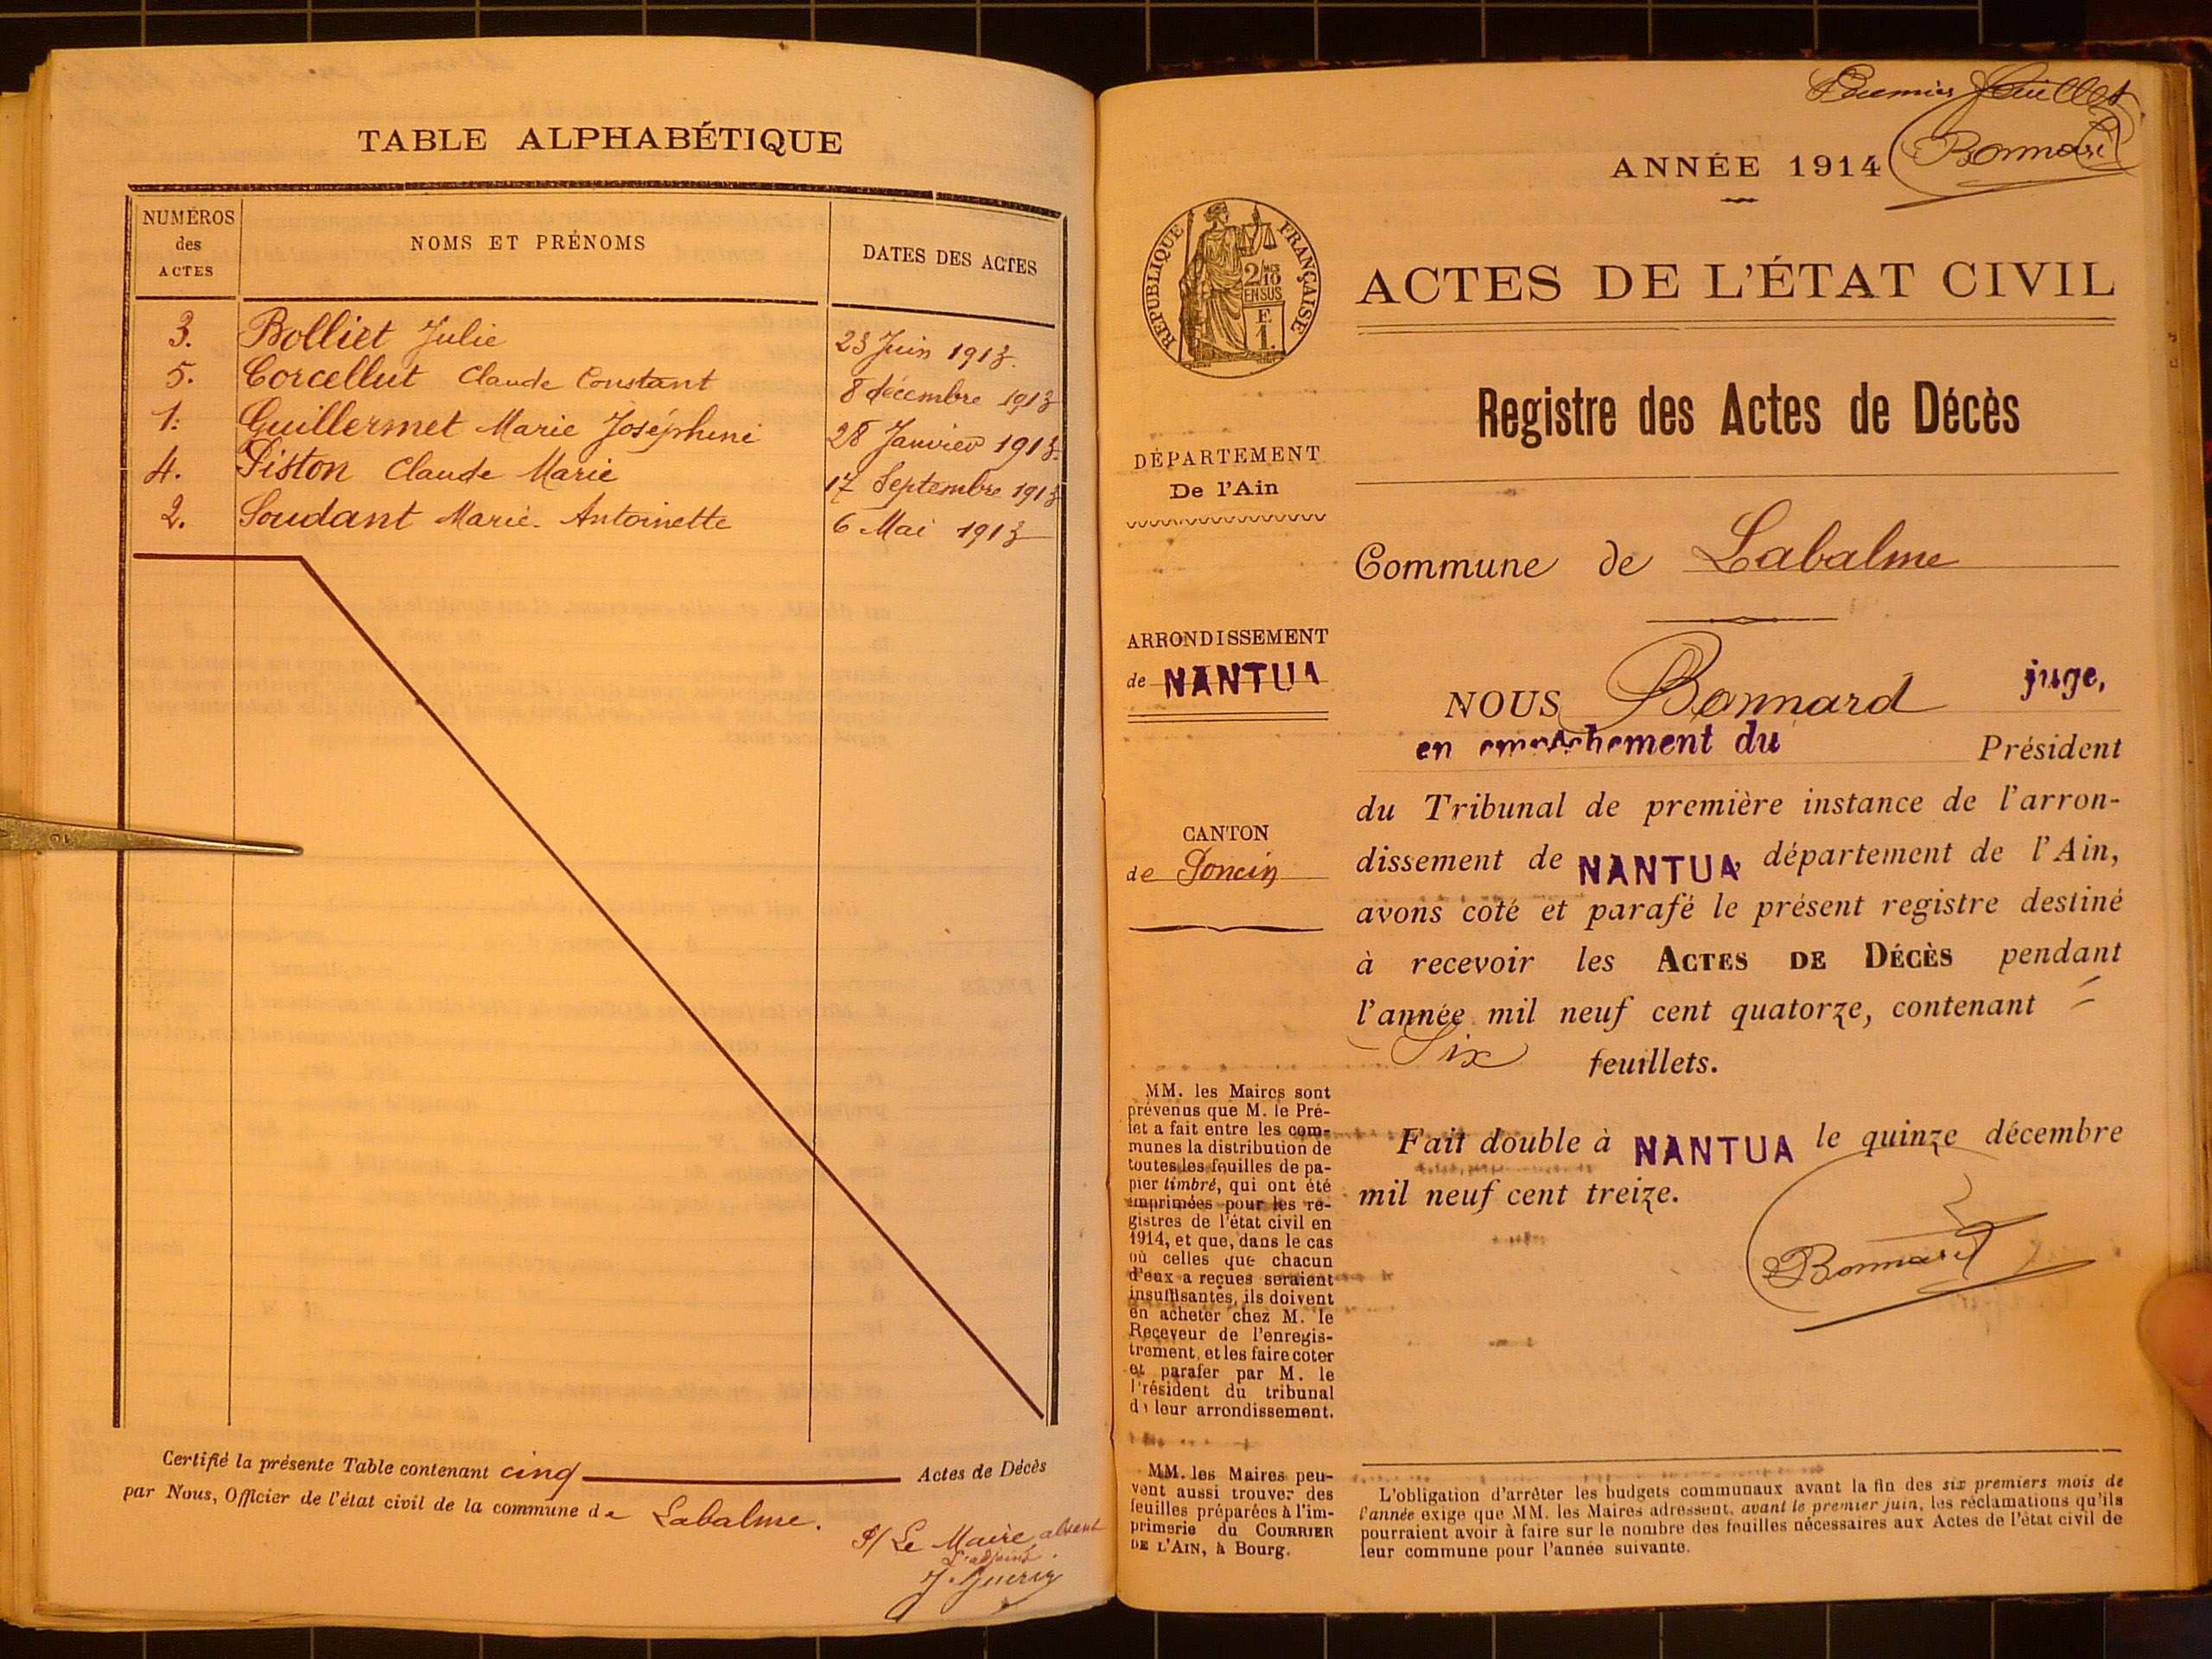 TABLE ALPHABÉTIQUE
NUMÉROS des ACTES
NOMS ET PRÉNOMS
DATES DES ACTES
3. Bolliet Julie 23 Juin 1913.
5. Corcellut Claude Constant 8 décembre 1913
1. Guillermet Marie Joséphine 28 Janvier 1913.
4. Piston Claude Marie 17 Septembre 1913
2. Soudant Marie-Antoinette 6 Mai 1913
Certifié la présente Table contenant cinq Actes de Décès
par Nous, Officier de l'état civil de la commune de Labalme.
P/ Le Maire absent
L'adjoint.
Premier feuillet
Bonnard
ANNÉE 1914
ACTES DE L'ÉTAT CIVIL
RÉPUBLIQUE FRANÇAISE
2/10
EN SUS
E
1.
Registre des Actes de Décès
DÉPARTEMENT
De l'Ain
Commune de Labalme
ARRONDISSEMENT
de NANTUA
NOUS Bonnard juge,
en empêchement du Président
du Tribunal de première instance de l'arron-
dissement de NANTUA, département de l'Ain,
avons coté et parafé le présent registre destiné
à recevoir les ACTES DE DÉCÈS pendant
l'année mil neuf cent quatorze, contenant
Six feuillets.
Fait double à NANTUA le quinze décembre
mil neuf cent treize.
Bonnard
CANTON
de Poncin
MM. les Maires sont
prévenus que M. le Pré-
fet a fait entre les com-
munes la distribution de
toutes les feuilles de pa-
pier timbré, qui ont été
imprimées pour les re-
gistres de l'état civil en
1914, et que, dans le cas
où celles que chacun
d'eux a reçues seraient
insuffisantes, ils doivent
en acheter chez M. le
Receveur de l'enregis-
trement, et les faire coter
et parafer par M. le
Président du tribunal
de leur arrondissement.
MM. les Maires peu-
vent aussi trouver des
feuilles préparées à l'im-
primerie du COURRIER
DE L'AIN, à Bourg.
L'obligation d'arrêter les budgets communaux avant la fin des six premiers mois de
l'année exige que MM. les Maires adressent, avant le premier juin, les réclamations qu'ils
pourraient avoir à faire sur le nombre des feuilles nécessaires aux Actes de l'état civil de
leur commune pour l'année suivante.